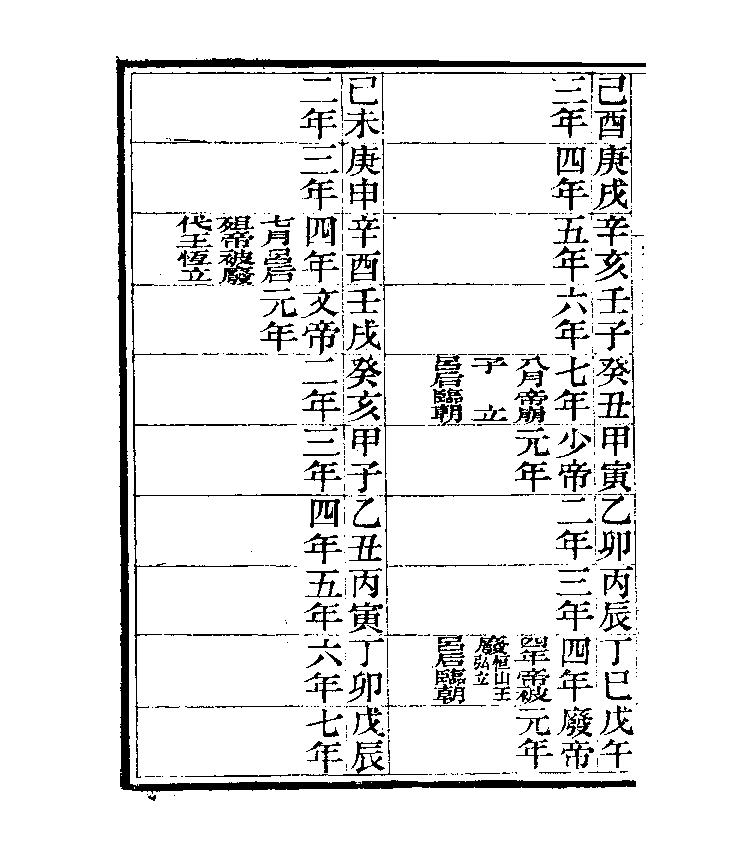 己酉庚戌辛亥壬子癸丑甲寅乙卯丙辰丁巳戊午
三年四年五年六年七年少帝二年三年四年廢帝
八月帝崩元年四年帝被元年
子立廢恒山王弘立
呂后臨朝呂后臨朝
己未庚申辛酉壬戌癸亥甲子乙丑丙寅丁卯戊辰
二年三年四年文帝二年三年四年五年六年七年
七月呂后元年
殂帝被廢
代王恆立